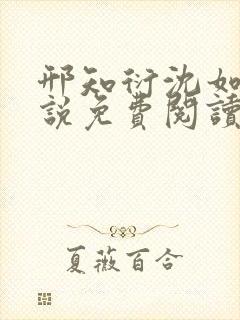 邢知衍沈如
說免費閱讀
夏薇百合